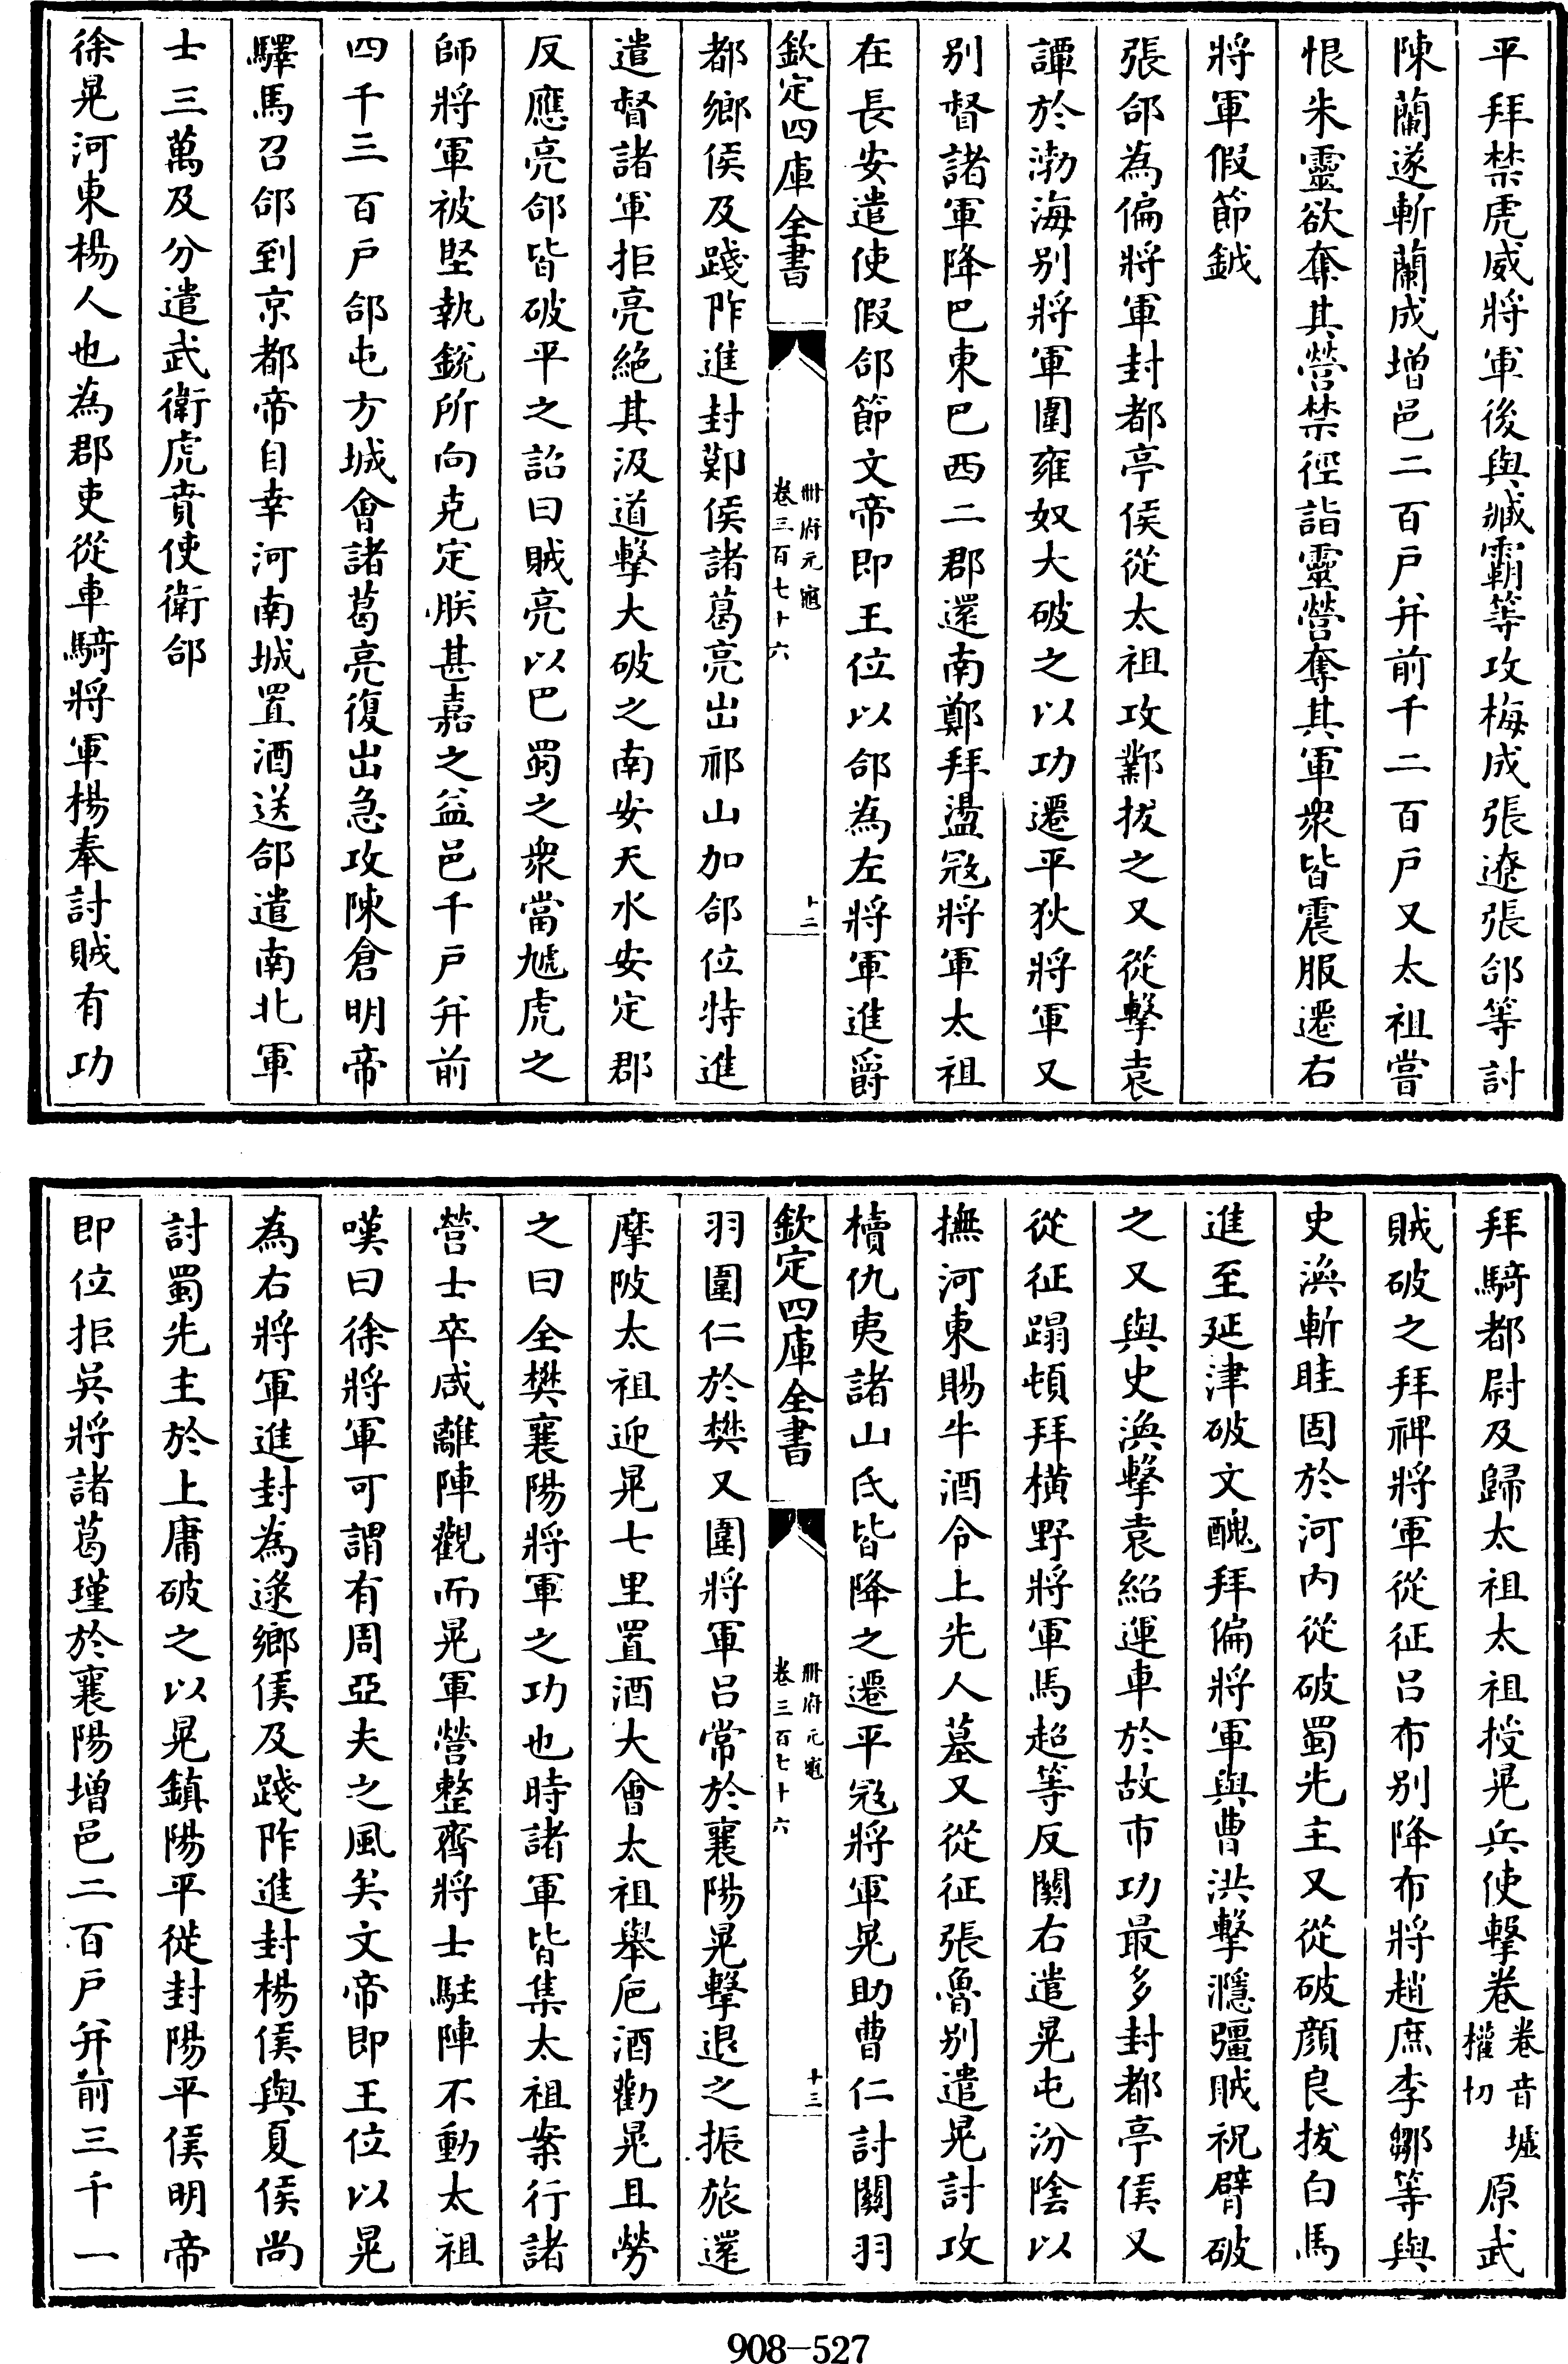 平拜禁虎威將軍後與臧霸等攻梅成張遼張郃等討
陳蘭遂斬蘭成增邑二百户并前千二百户又太祖嘗
恨朱靈欲奪其營禁徑詣靈營奪其軍衆皆震服遷右
將軍假節鉞
張郃為偏將軍封都亭侯從太祖攻鄴拔之又從擊袁
譚於渤海别將軍圍雍奴大破之以功遷平狄將軍又
别督諸軍降巴東巴西二郡還南鄭拜盪冦將軍太祖
在長安遣使假郃節文帝即王位以郃為左將軍進爵
欽定四庫全書
冊府元龜
卷三百七十六
十二
都鄉侯及踐阼進封鄚侯諸葛亮出祁山加郃位特進
遣督諸軍拒亮絶其汲道擊大破之南安天水安定郡
反應亮郃皆破平之詔曰賊亮以巴蜀之衆當虓虎之
師將軍被堅執銳所向克定朕甚嘉之益邑千户并前
四千三百户郃屯方城會諸葛亮復出急攻陳倉明帝
驛馬召郃到京都帝自幸河南城置酒送郃遣南北軍
士三萬及分遣武衛虎賁使衛郃
徐晃河東楊人也為郡吏從車騎將軍楊奉討賊有功
拜騎都尉及歸太祖太祖授晃兵使擊卷卷音墟權切原武
賊破之拜裨將軍從征吕布别降布將趙庶李鄒等與
史渙斬眭固於河内從破蜀先主又從破顔良拔白馬
進至延津破文醜拜偏將軍與曹洪擊㶏彊賊祝臂破
之又與史渙擊袁紹運車於故市功最多封都亭侯又
從征蹋頓拜横野將軍馬超等反闗右遣晃屯汾陰以
撫河東賜牛酒令上先人墓又從征張魯别遣晃討攻
櫝仇夷諸山氏皆降之遷平冦將軍晃助曹仁討闗羽
欽定四庫全書
冊府元龜
卷三百七十六
十三
羽圍仁於樊又圍將軍吕常於襄陽晃擊退之振旅還
摩陂太祖迎晃七里置酒大會太祖舉巵酒勸晃且勞
之曰全樊襄陽將軍之功也時諸軍皆集太祖案行諸
營士卒咸離陣觀而晃軍營整齊將士駐陣不動太祖
嘆曰徐將軍可謂有周亞夫之風矣文帝即王位以晃
為右將軍進封為逯鄉侯及踐阼進封楊侯與夏侯尚
討蜀先主於上庸破之以晃鎮陽平徙封陽平侯明帝
即位拒吳將諸葛瑾於襄陽增邑二百户并前三千一
908-527